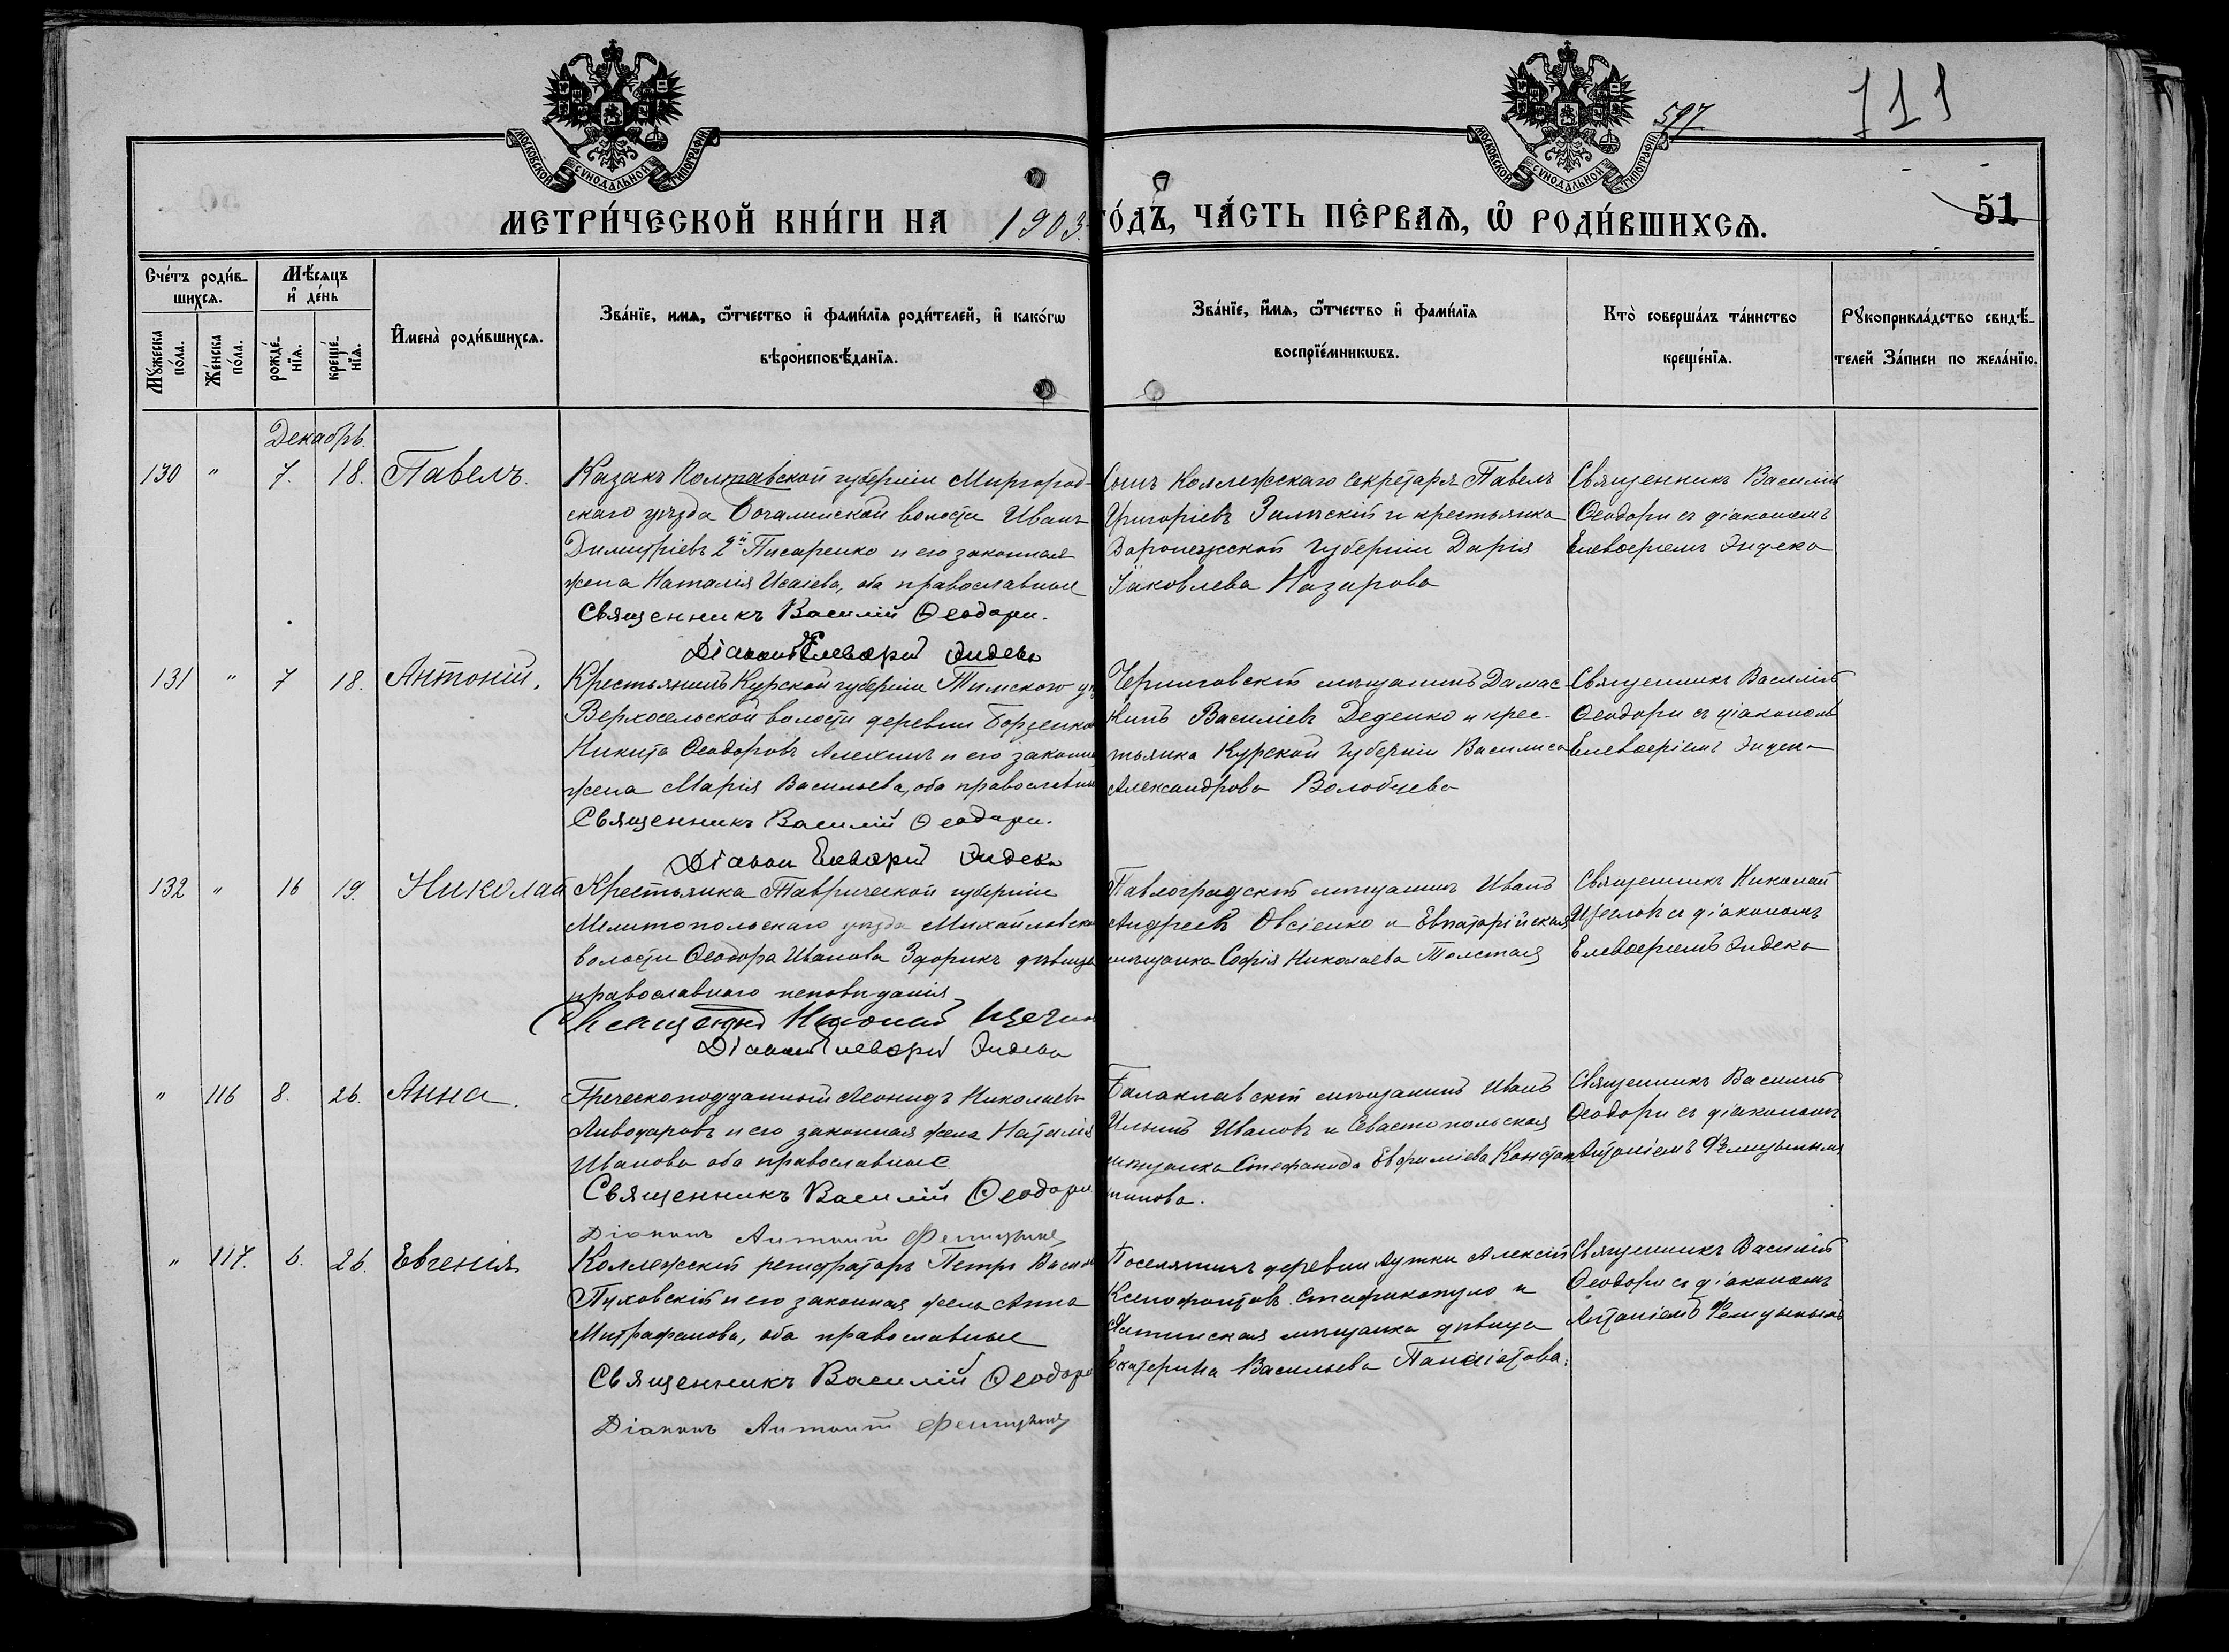 МОСКОВСКОЙ СѴНОДАЛЬНОЙ ТИПОГРАФІИ
МОСКОВСКОЙ СѴНОДАЛЬНОЙ ТИПОГРАФІИ
597
111
51
МЕТРИ́ЧЕСКОЙ КНИ́ГИ НА 1903 ГО́ДЪ, ЧА́СТЬ ПЕ́РВАѦ, Ѡ҆ РОДИ́ВШИХСѦ.
Сче́тъ роди́в-
шихсѧ.
Мꙋ́жеска
по́ла.
Же́нска
по́ла.
Мѣ́сѧцъ
и҆ де́нь
рожде́-
нїѧ.
креще́-
нїѧ.
И҆мена̀ роди́вшихсѧ.
Зва́нїе, имѧ, ѻ҆́тчество и҆ фами́лїѧ роди́телей, и҆ како́гѡ
вѣроисповѣ́данїѧ.
Зва́нїе, и҆́мѧ, ѻ҆́тчество и҆ фами́лїѧ
воспрїе́мникѡвъ.
Кто̀ соверша́лъ та́инство
креще́нїѧ.
Рꙋкоприкла́дство свидѣ́-
телей За́писи по жела́нїю.
Декабрь.
130 " 7. 18. Павелъ.
Казакъ Полтавской губерніи Миргород-
скаго уѣзда волости Иванъ
Димитріевъ 2й Писаренко и его законная
жена Наталія Исаіева, оба православные
Священникъ Василій Ѳеодори.
Діаконъ Елевѳерій Эндека
Сынъ Коллежскаго Секретаря Павелъ
Григоріевъ и крестьянка
Воронежской губерніи Дарія
Іаковлева Назарова
Священникъ Василій
Ѳеодори съ діакономъ
Елевѳеріемъ Эндека
131 " 7 18. Антоній.
Крестьянинъ Курской губерніи Тимского уѣз
Верхосельской волости деревни
Никита Ѳеодоровъ Алехинъ и его законная
жена Марія Васильева, оба православные
Священникъ Василій Ѳеодори.
Діаконъ Елевѳерій Эндека
Черниговскій мѣщанинъ Дамас-
кинъ Василіевъ Деденко и крес-
тьянка Курской губерніи Василиса
Александрова Волобуева
Священникъ Василій
Ѳеодори съ діакономъ
Елевѳеріемъ Эндека
132 " 16 19. Николай
Крестьянка Таврической губерніи
Мелитопольскаго уѣзда Михайловской
волости Ѳеодора Иванова Здорикъ дѣвица
православнаго исповѣданія
Священникъ Николай
Діаконъ Елевѳерій Эндека
Павлоградскій мѣщанинъ Иванъ
Андреевъ Овсіенко и Евпаторійская
мѣщанка Софія Николаева Толстая
Священникъ Николай
съ діакономъ
Елевѳеріемъ Эндека
" 116 8. 26. Анна.
Греческоподданный Леонидъ Николаевъ
Ливодаровъ и его законная жена Наталія
Иванова оба православные
Священникъ Василій Ѳеодори
Діаконъ Антоній Фелицынъ
Балаклавскій мѣщанинъ Иванъ
Ильинъ Ивановъ и Севастопольская
мѣщанка Стефанида Евфиміева Констан-
тинова.
Священникъ Василій
Ѳеодори съ діакономъ
Антоніемъ Фелицынымъ
" 117. 6. 26. Евгенія
Коллежскій регистраторъ Петръ
Пуховскій и его законная жена Анна
Митрофанова, оба православные
Священникъ Василій Ѳеодори
Діаконъ Антоній Фелицынъ
Поселянинъ деревни Аутки Алексій
Ксенофонтовъ Стафикопуло и
Ялтинская мѣщанка дѣвица
Екатерина Васильева Панаіотова.
Священникъ Василій
Ѳеодори съ діакономъ
Антоніемъ Фелицынымъ